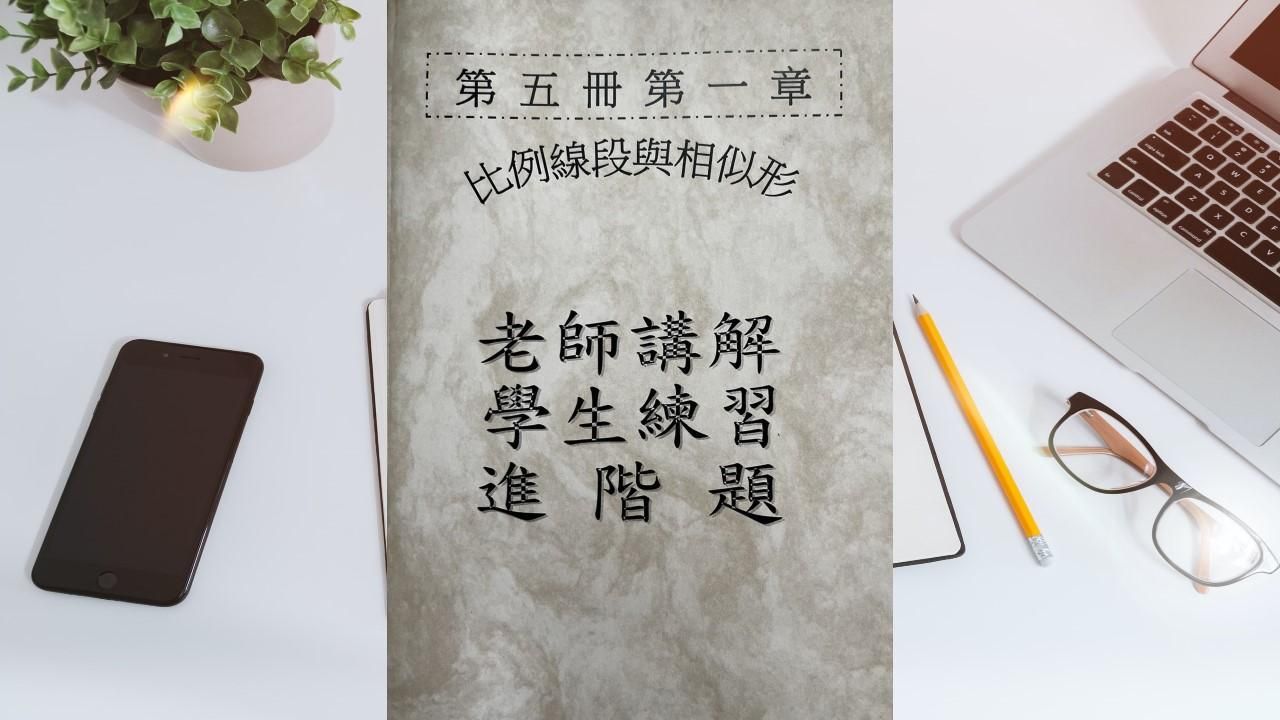 第五冊第一章
比例線段與相似形
老師講解
學生練習
進階題